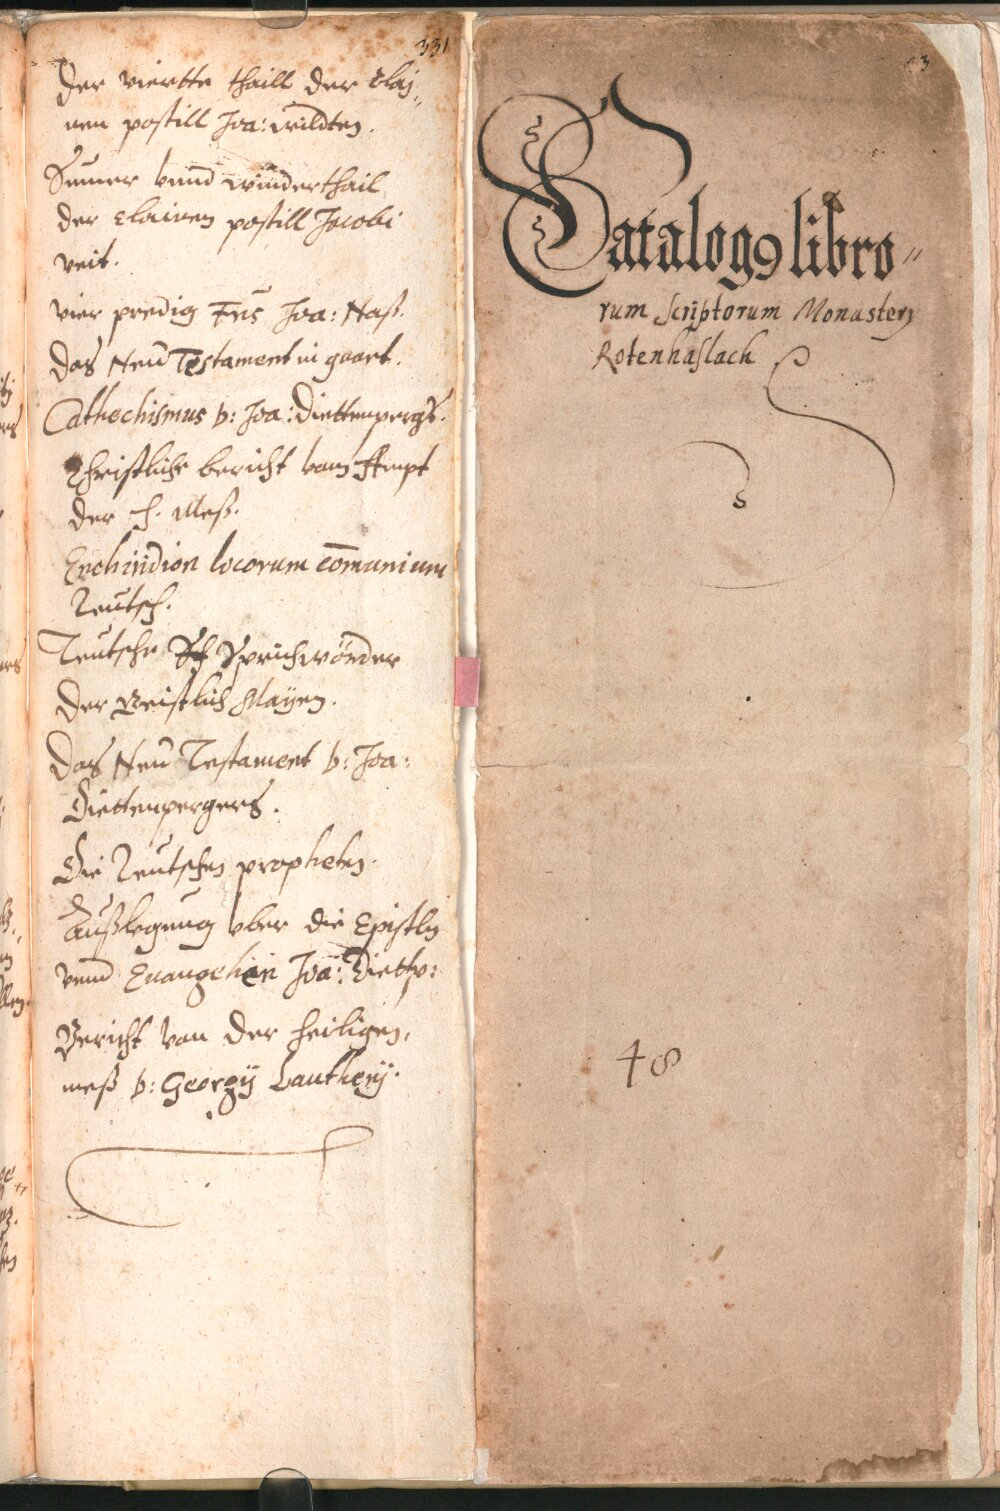 331
Der viertte thaill der clai„
nen postill Joa: wildten.
Summer vnnd winderthail
der clainen postill Jacobi
veit.
vier predig Fris Joa: Naß.
Das Neu Testament in quart.
Cathechismus v: Joa: Diettenpergs.
Christliche bericht vom
der h. Meß.
Enchiridion locorum comunium
Teutsch.
Teutsche Sprichwörder
Der Geistlich Mayen.
Das Neu Testament v: Joa:
Diettenpergers.
Die Teutschen propheten.
Außlegung vber die Epistln
vnnd Euangelien Joa: Dietp:
Bericht von der heiligen
meß v: Georgij Lautherij.
3
Catalog9 libro„
rum scriptorum Monasterij
Rotenhaslach
48